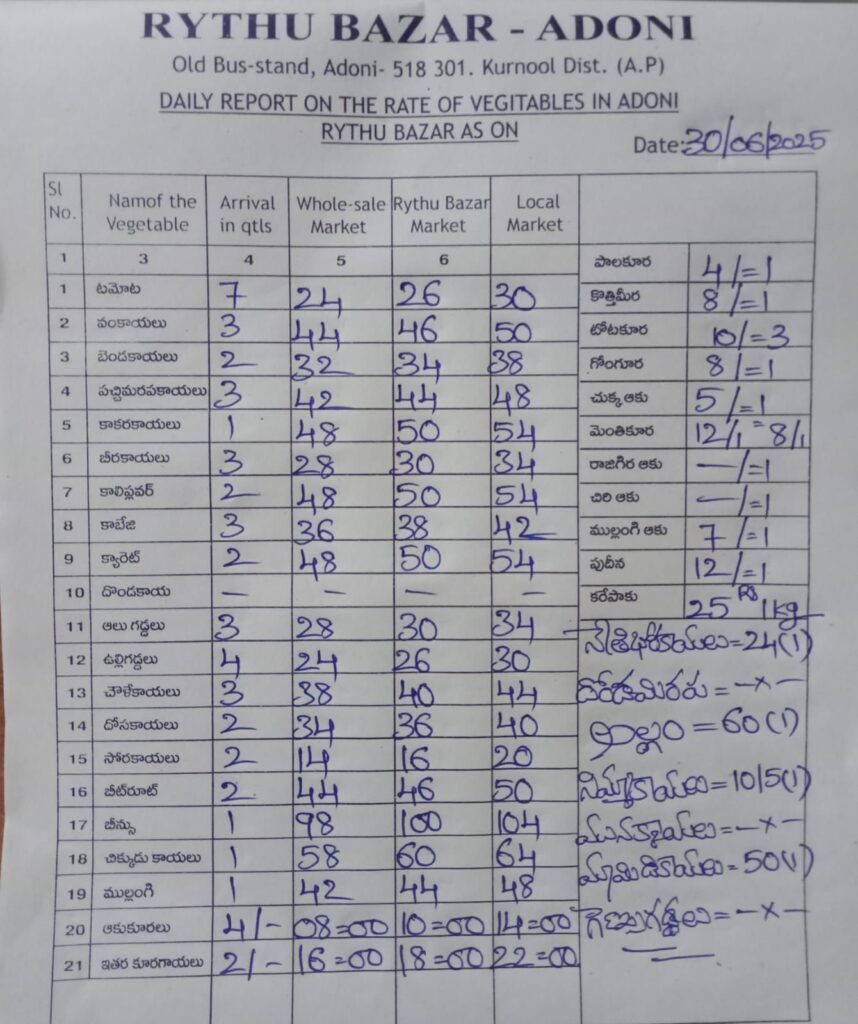 RYTHU BAZAR - ADONI
Old Bus-stand, Adoni- 518 301. Kurnool Dist. (A.P)
DAILY REPORT ON THE RATE OF VEGITABLES IN ADONI
RYTHU BAZAR AS ON
Date: 30/06/2025
Sl No. Namof the Vegetable Arrival in qtls Whole-sale Market Rythu Bazar Market Local Market
1 3 4 5 6
1 టమోట 7 24 26 30
2 వంకాయలు 3 44 46 50
3 బెండకాయలు 2 32 34 38
4 పచ్చిమిరపకాయలు 3 42 44 48
5 కాకరకాయలు 1 48 50 54
6 బీరకాయలు 3 28 30 34
7 కాలిఫ్లవర్ 2 48 50 54
8 కాబేజి 3 36 38 42
9 క్యారెట్ 2 48 50 54
10 దొండకాయ — — — —
11 ఆలు గడ్డలు 3 28 30 34
12 ఉల్లిగడ్డలు 4 24 26 30
13 చౌళేకాయలు 3 38 40 44
14 దోసకాయలు 2 34 36 40
15 సోరకాయలు 2 14 16 20
16 బీట్‌రూట్ 2 44 46 50
17 బీన్సు 1 98 100 104
18 చిక్కుడు కాయలు 1 58 60 64
19 ముల్లంగి 1 42 44 48
20 ఆకుకూరలు 4/- 08=00 10=00 14=00
21 ఇతర కూరగాయలు 2/- 16=00 18=00 22=00
పాలకూర 4/=1
కొత్తిమీర 8/=1
టోటకూర 10/=3
గోంగూర 8/=1
చుక్క ఆకు 5/=1
మెంతికూర 12/1 = 8/1
రాజగిర ఆకు —/=1
చిరి ఆకు —/=1
ముల్లంగి ఆకు 7/=1
పుదీన 12/=1
కరేపాకు 25 Rs 1kg
=24(1)
= —x—
అల్లం = 60(1)
నిమ్మకాయలు = 10/5(1)
మునక్కాయలు = —x—
మామిడికాయలు = 50(1)
గెణుసుగడ్డలు = —x—